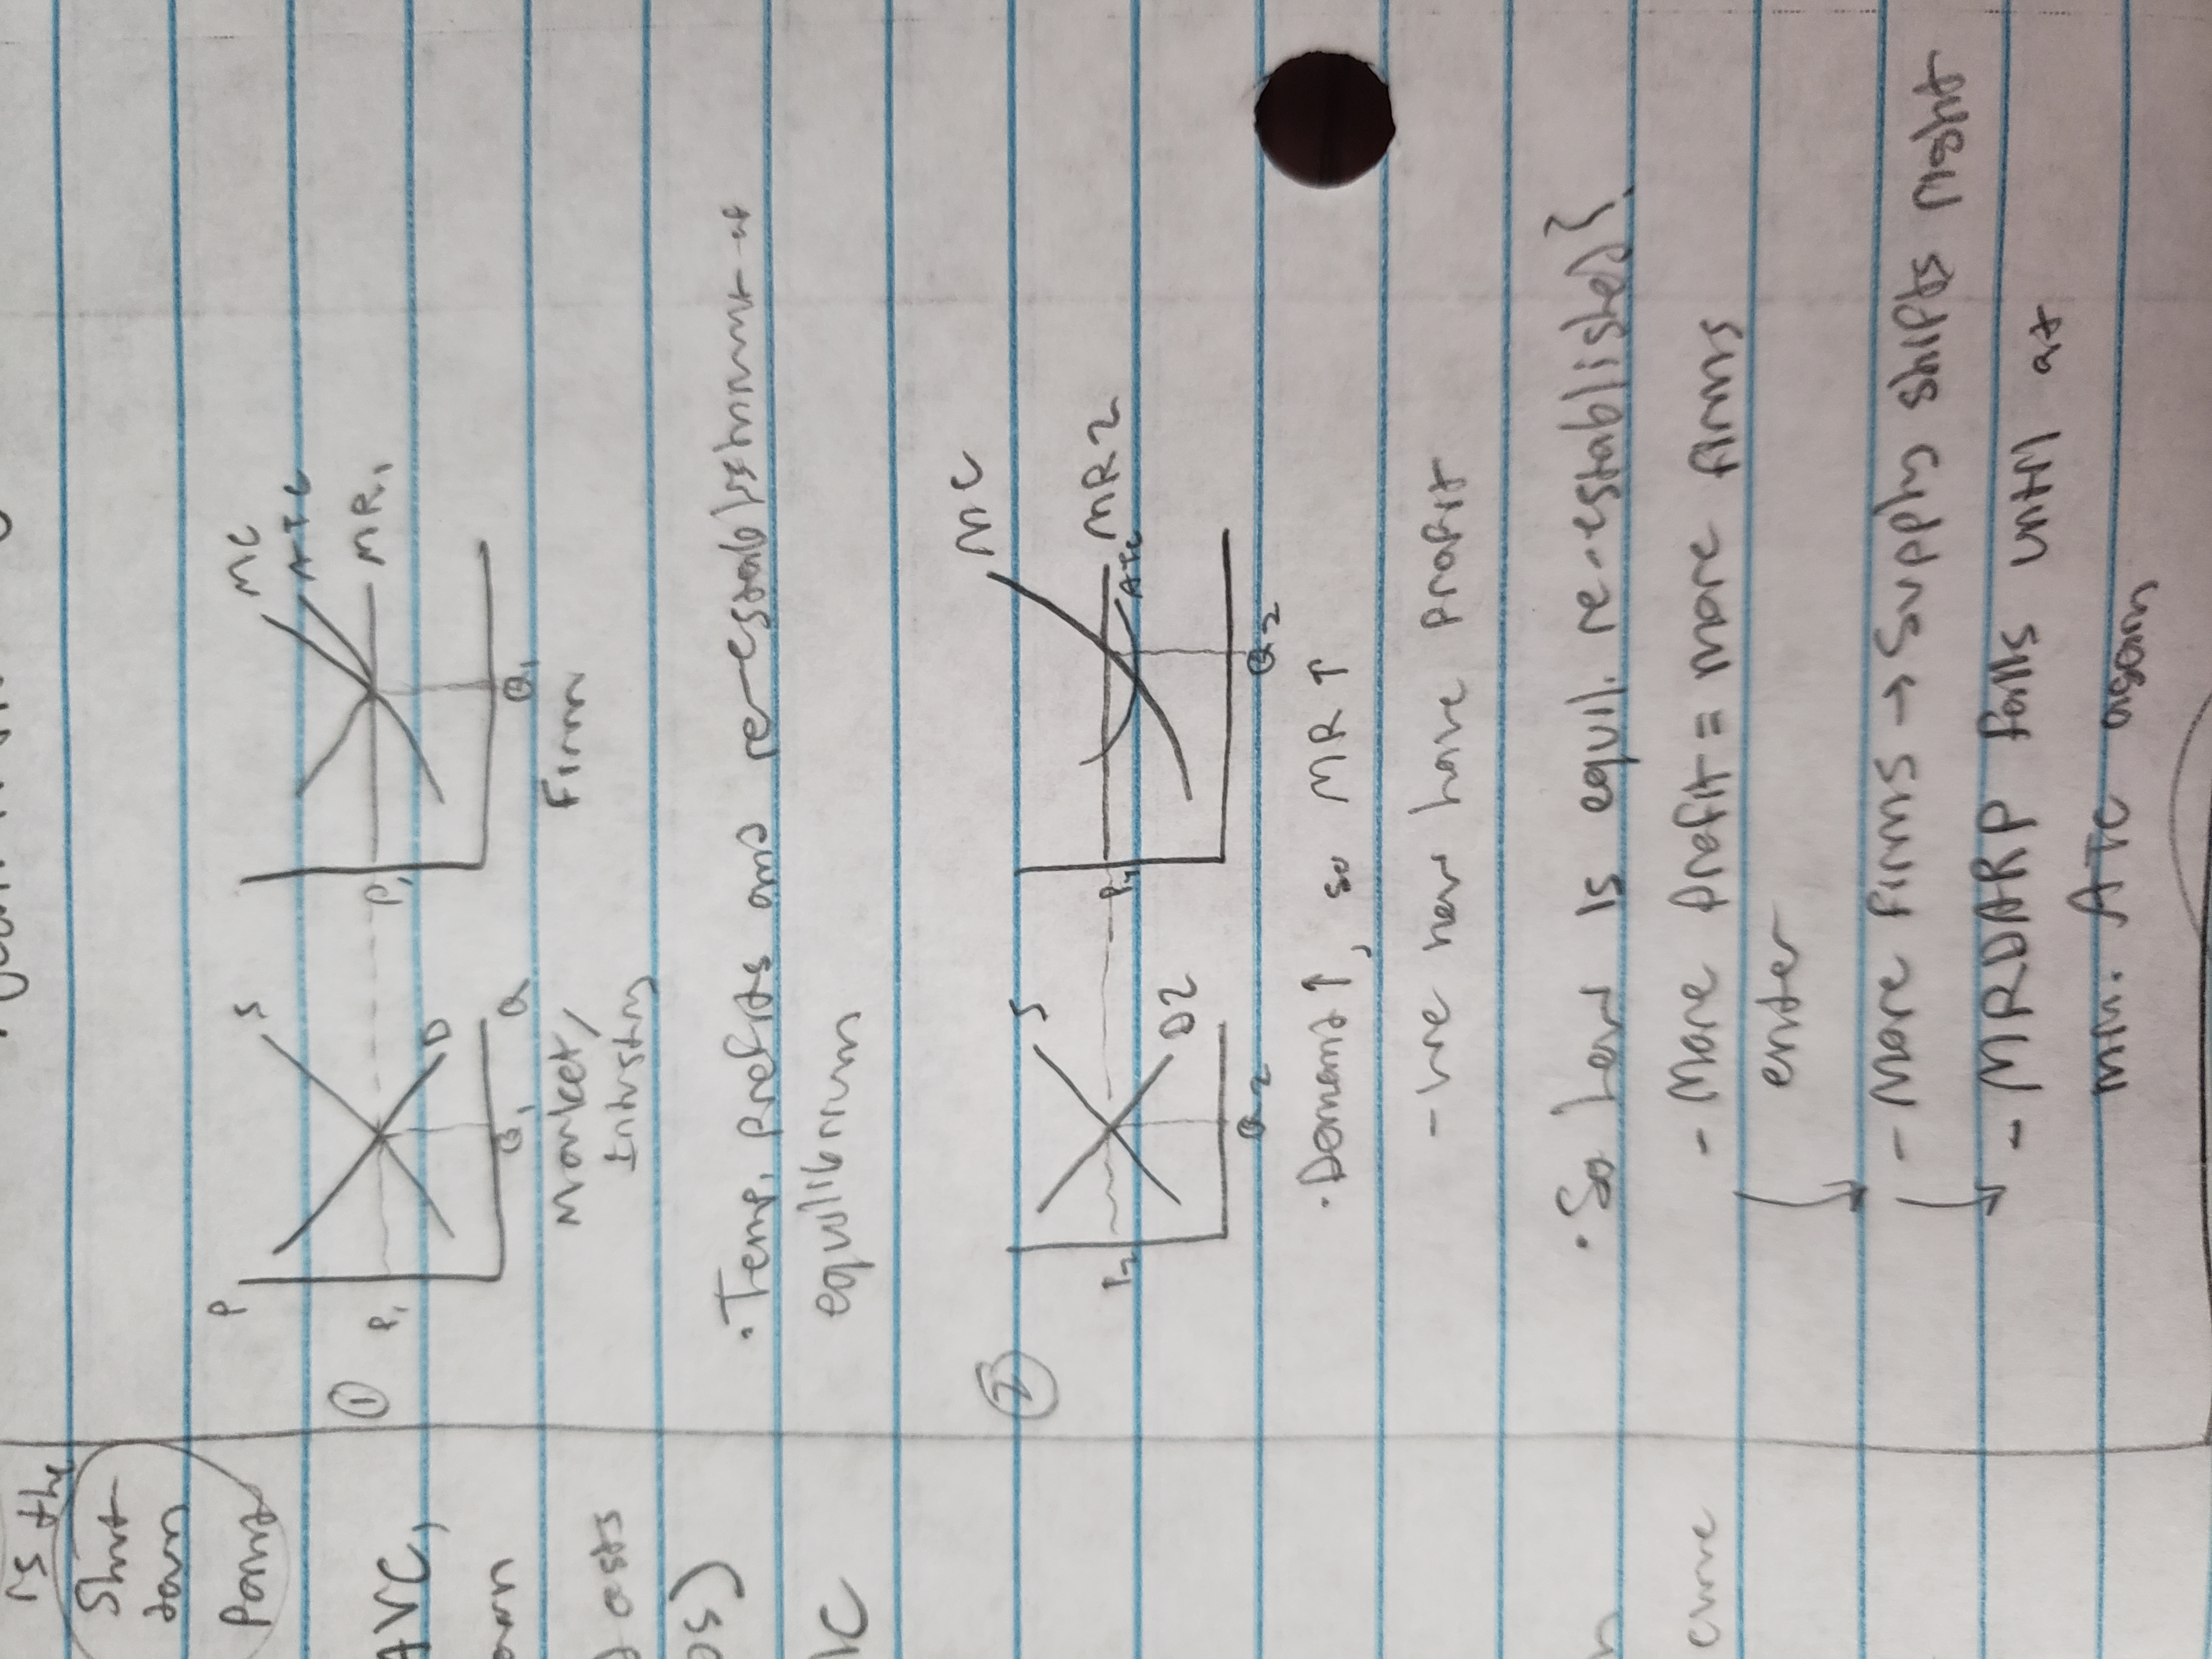 is the
Shut
down
Point
AVC,
costs
curve
①
P
S
MC
ATC
MR₁
P₁
P₁
D
Q₁
Q
Q₁
Market/
Industry
Firm
· Temp. profits and re-establishment of
equilibrium
②
S
MC
P₂
P₂
MR2
ATC
D2
Q2
Q2
· Demand ↑, so MR ↑
- we now have profit
· So how is equil. re-established?
- More profit = more firms
enter
- More firms → Supply shifts right
- MRDARP falls until at
min. ATC again